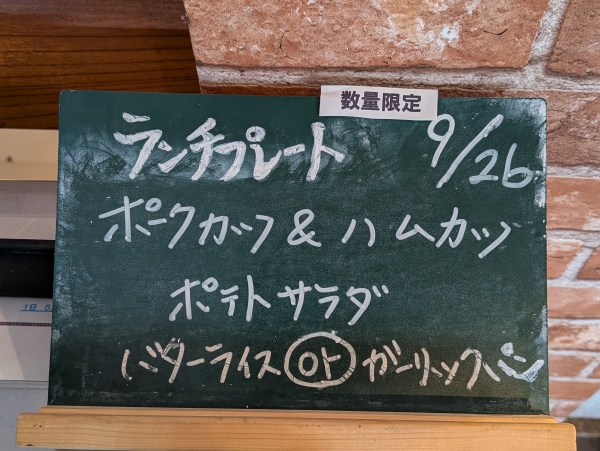 数量限定
ランチプレート 9/26
ポークカツ & ハムカツ
ポテトサラダ
バターライス or ガーリックパン